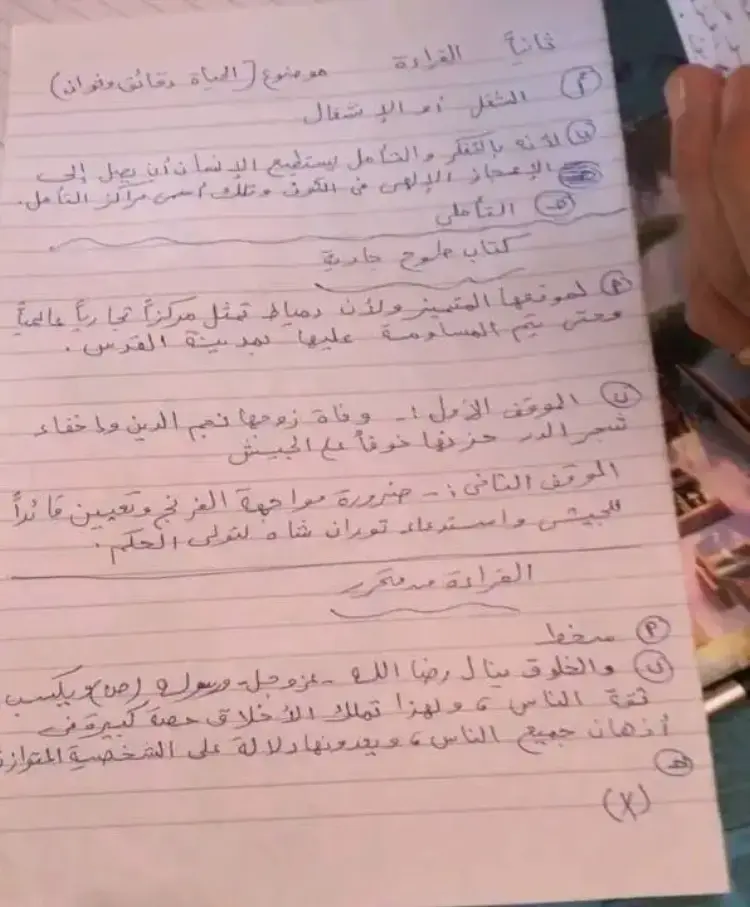 ثانياً القراءة موضوع (الحياة دقائق وثوان)
(أ) الشغل أو الإنشغال
(ب) لأنه بالتفكر والتأمل يستطيع الإنسان أن يصل إلى
الإعجاز الإلهى فى الكون وتلك أسمى مراكز التأمل.
(جـ) التأملى
كتاب طموح جارية
(أ) لموقعها المتميز ولأن دمياط تمثل مركزاً تجارياً عالمياً
وحتى يتم المساومة عليها بمدينة القدس.
(ب) الموقف الأول :- وفاة زوجها نجم الدين وإخفاء
شجر الدر حزنها خوفاً على الجيش
الموقف الثانى :- ضرورة مواجهة الفرنج وتعيين قائداً
للجيش واستدعاء توران شاه لتولى الحكم.
القراءة متحرر
(أ) سخط
(ب) والخلوق ينال رضا الله - عزوجل - ورسوله (ص) ويكسب
ثقة الناس، ولهذا تملك الأخلاق حصة كبيرة فى
أذهان جميع الناس، ويعدونها دلالة على الشخصية المتواز
(جـ)
(X)